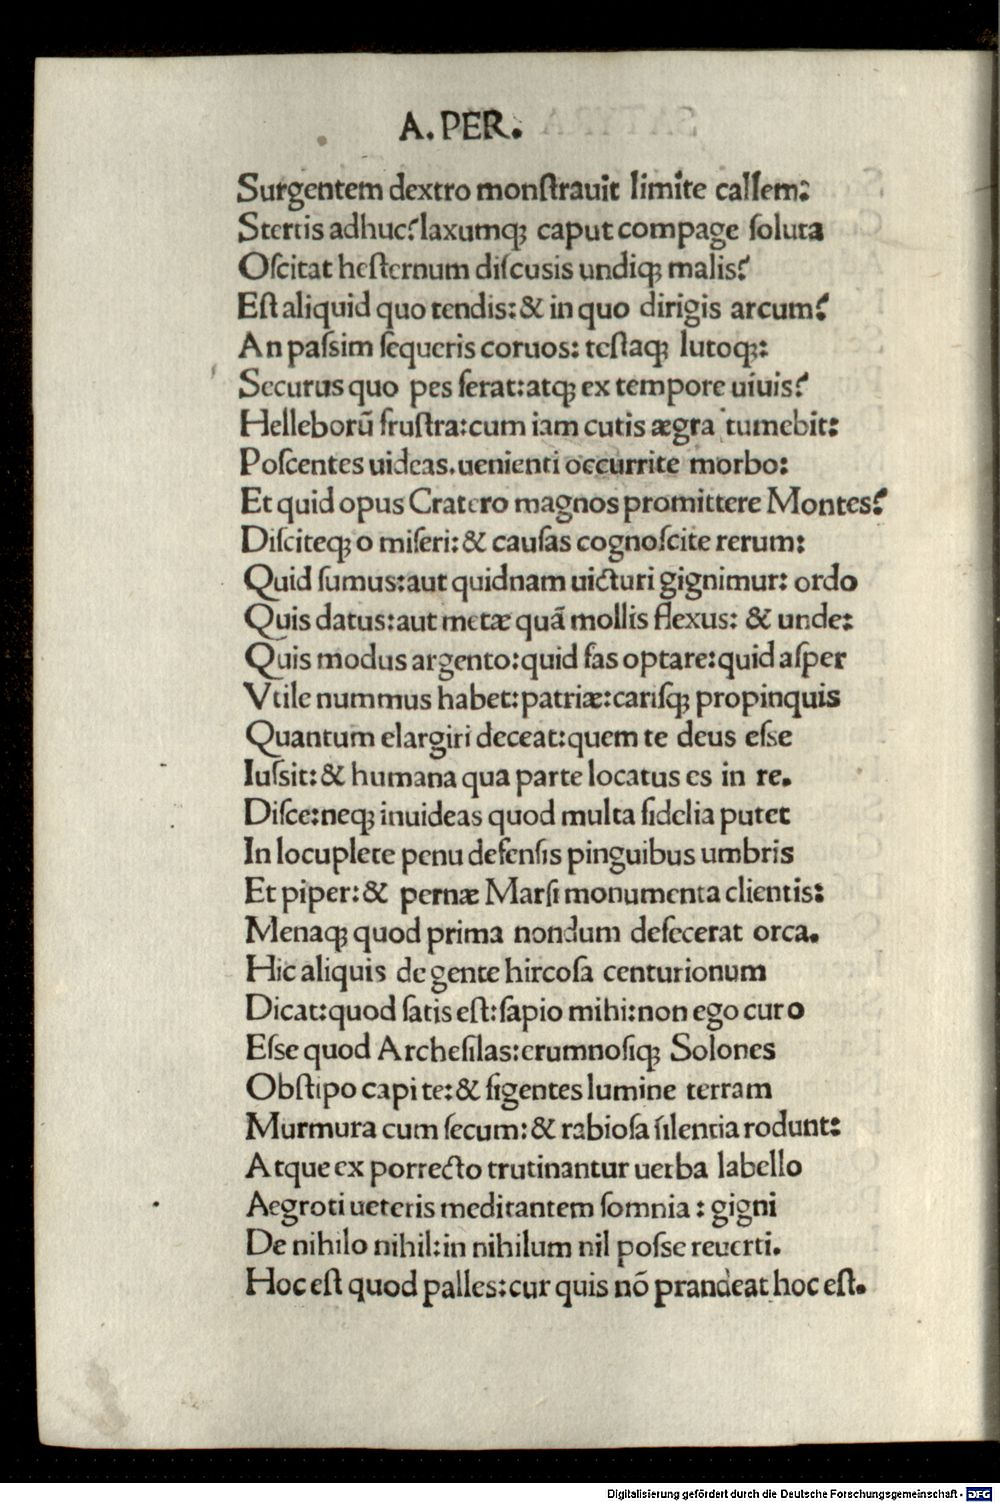 A. PER.
Surgentem dextro monſtrauit limite callem:
Stertis adhuc? laxumqꝫ caput compage ſoluta
Oſcitat heſternum diſcusis undiqꝫ malis?
Eſt aliquid quo tendis: & in quo dirigis arcum?
An paſsim ſequeris coruos: teſtaqꝫ lutoqꝫ:
Securus quo pes ferat: atqꝫ ex tempore uiuis?
Helleborū fruſtra: cum iam cutis ægra tumebit:
Poſcentes uideas. uenienti occurrite morbo:
Et quid opus Cratero magnos promittere Montes?
Diſciteqꝫ o miſeri: & cauſas cognoſcite rerum:
Quid ſumus: aut quidnam uicturi gignimur: ordo
Quis datus: aut metæ quā mollis flexus: & unde:
Quis modus argento: quid fas optare: quid aſper
Vtile nummus habet: patriæ: cariſqꝫ propinquis
Quantum elargiri deceat: quem te deus eſse
Iuſsit: & humana qua parte locatus es in re.
Diſce: neqꝫ inuideas quod multa fidelia putet
In locuplete penu defenſis pinguibus umbris
Et piper: & pernæ Marſi monumenta clientis:
Menaqꝫ quod prima nondum defecerat orca.
Hic aliquis de gente hircoſa centurionum
Dicat: quod ſatis eſt: ſapio mihi: non ego curo
Eſse quod Archeſilas: erumnoſiqꝫ Solones
Obſtipo capite: & figentes lumine terram
Murmura cum ſecum: & rabioſa ſilentia rodunt:
Atque ex porrecto trutinantur uerba labello
Aegroti ueteris meditantem ſomnia: gigni
De nihilo nihil: in nihilum nil poſse reuerti.
Hoc eſt quod palles: cur quis nō prandeat hoc eſt.
Digitalisierung gefördert durch die Deutsche Forschungsgemeinschaft - DFG